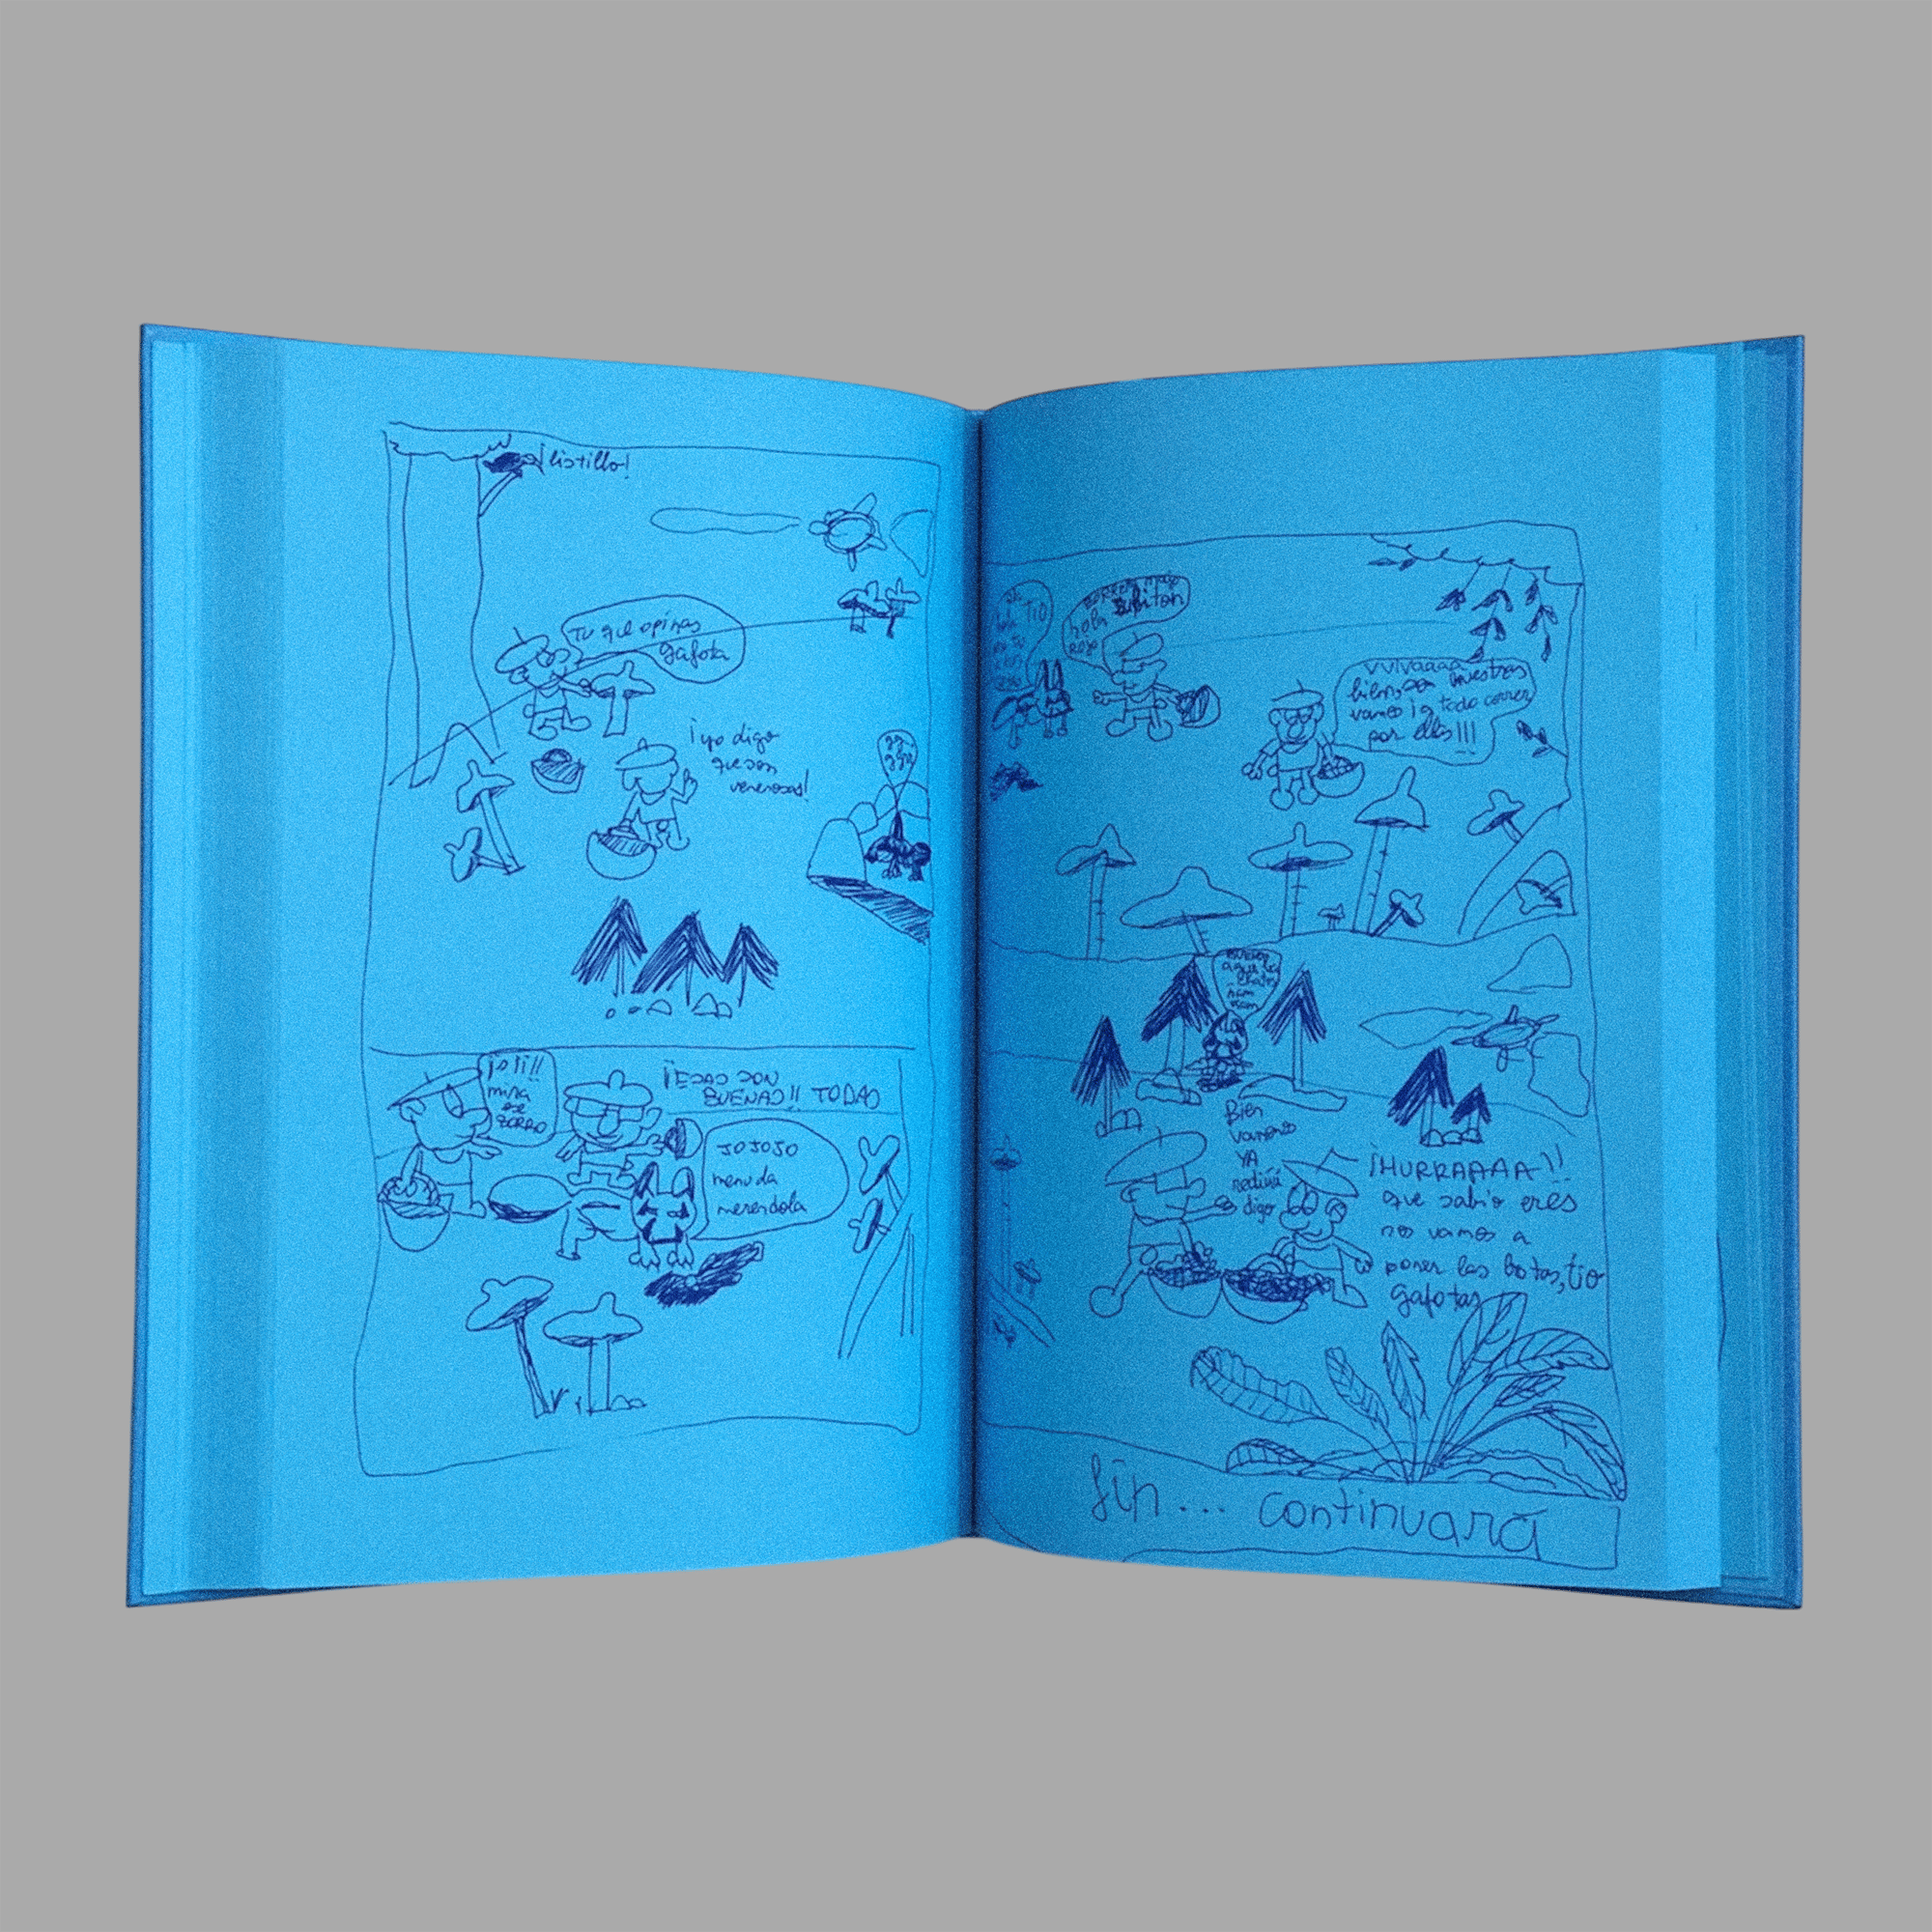 ¡listillo!
Tu que opinas
gafota
¡yo digo
que son
venenosas!
mira
ese
zorro
¡ESAS SON
BUENAS!! TODAS
JOJOJO
menuda
merendola
TIO
hola
vamos ¡a todo correr
por ellas!!!
Bien
vamonos
YA
digo
¡HURRAAAA!!
que sabio eres
nos vamos a
poner las botas, tio
gafotas
fin... continuará